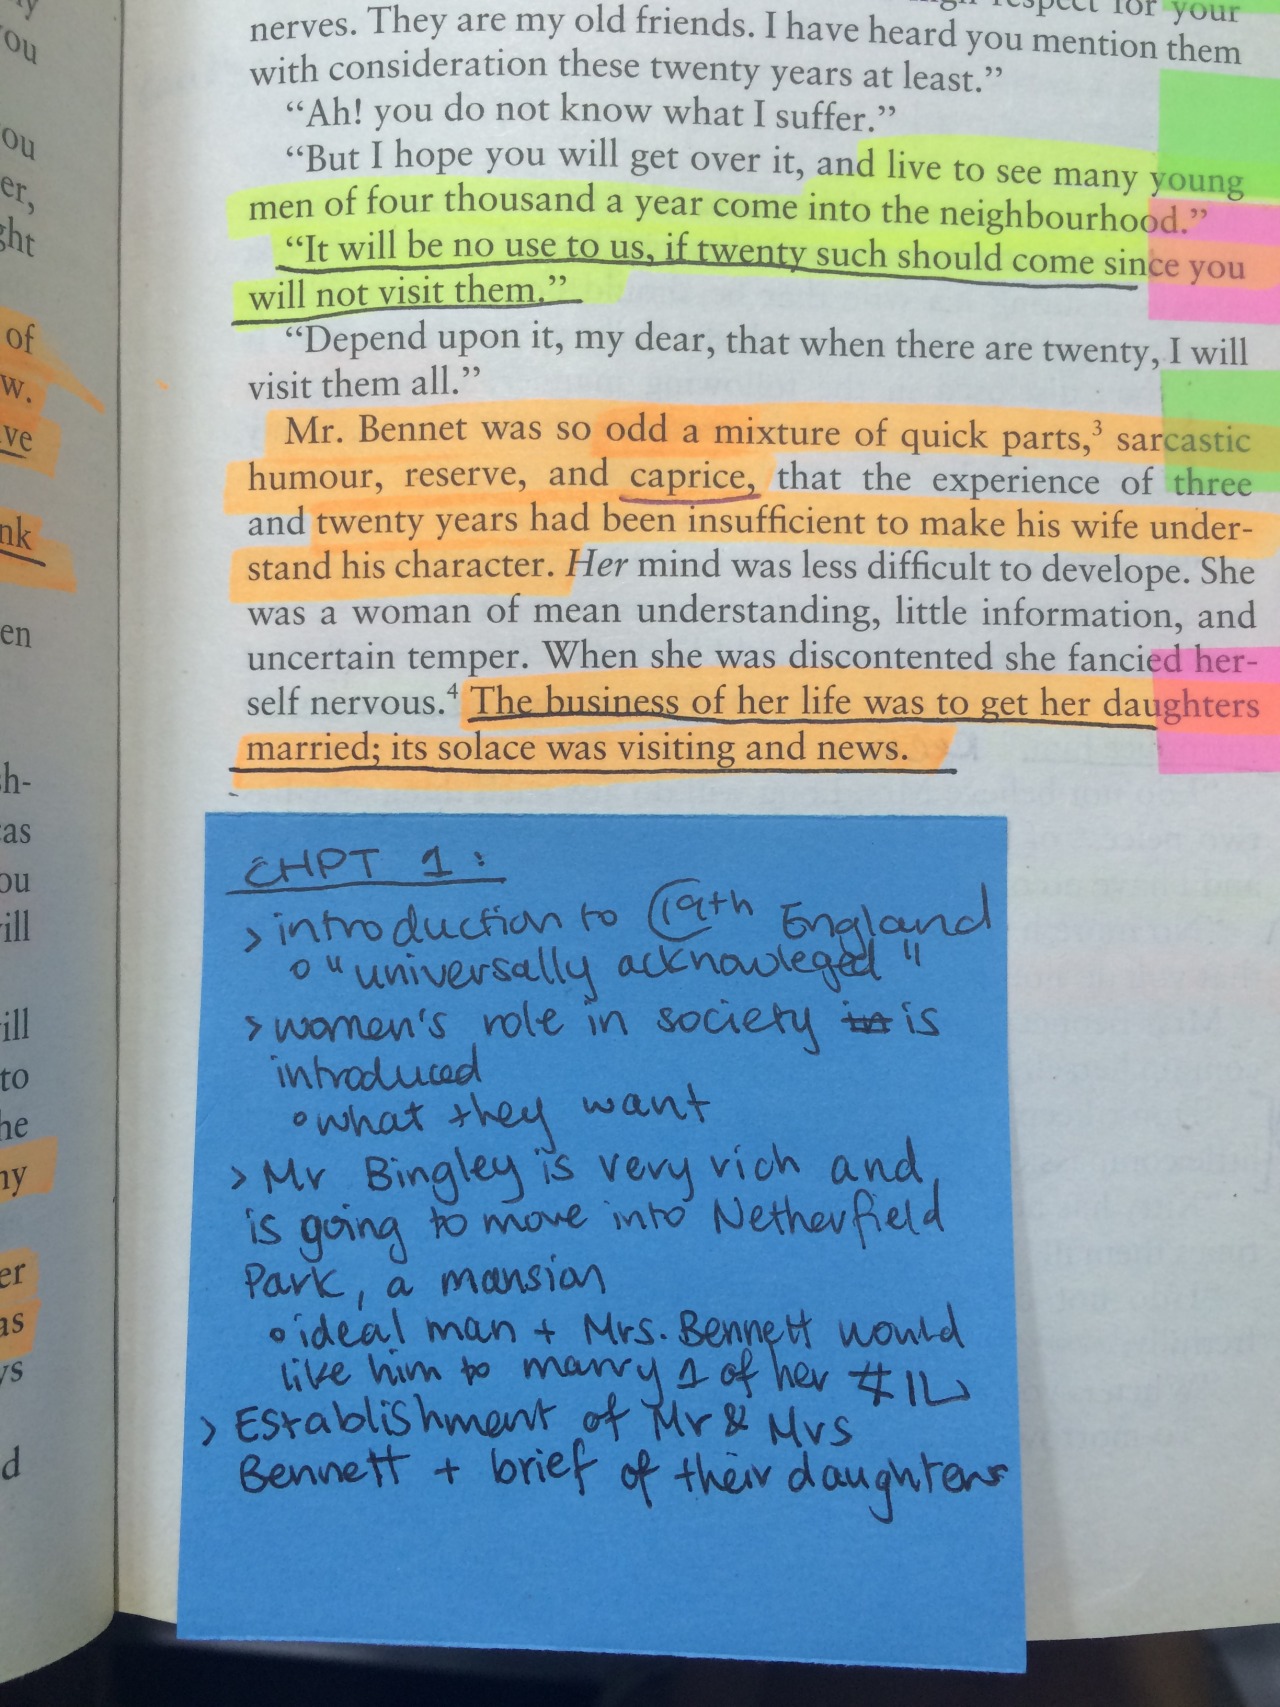 respect for your
nerves. They are my old friends. I have heard you mention them
with consideration these twenty years at least.”
“Ah! you do not know what I suffer.”
“But I hope you will get over it, and live to see many young
men of four thousand a year come into the neighbourhood.”
“It will be no use to us, if twenty such should come since you
will not visit them.”
“Depend upon it, my dear, that when there are twenty, I will
visit them all.”
Mr. Bennet was so odd a mixture of quick parts,³ sarcastic
humour, reserve, and caprice, that the experience of three
and twenty years had been insufficient to make his wife under-
stand his character. Her mind was less difficult to develope. She
was a woman of mean understanding, little information, and
uncertain temper. When she was discontented she fancied her-
self nervous.⁴ The business of her life was to get her daughters
married; its solace was visiting and news.
CHPT 1:
> introduction to 19th England
o "universally acknowleged"
> women's role in society in is
introduced
o what they want
> Mr Bingley is very rich and
is going to move into Netherfield
Park, a mansion
o ideal man + Mrs. Bennett would
like him to marry 1 of her
> Establishment of Mr & Mrs
Bennett + brief of their daughters